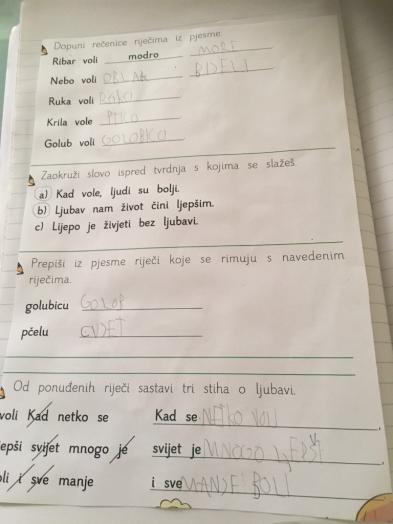 Dopuni rečenice riječima iz pjesme.
Ribar voli modro MORE
Nebo voli OBLAK BIJELI
Ruka voli RUKU
Krila vole PTICA
Golub voli GOLOBICO
Zaokruži slovo ispred tvrdnja s kojima se slažeš.
a) Kad vole, ljudi su bolji.
b) Ljubav nam život čini ljepšim.
c) Lijepo je živjeti bez ljubavi.
Prepiši iz pjesme riječi koje se rimuju s navedenim
riječima.
golubicu GOLOP
pčelu CVJET
Od ponuđenih riječi sastavi tri stiha o ljubavi.
voli Kad netko se Kad se NETKO VOLI
epši svijet mnogo je svijet je MNOGO LJEPŠI
oli i sve manje i sve MANJE BOLI